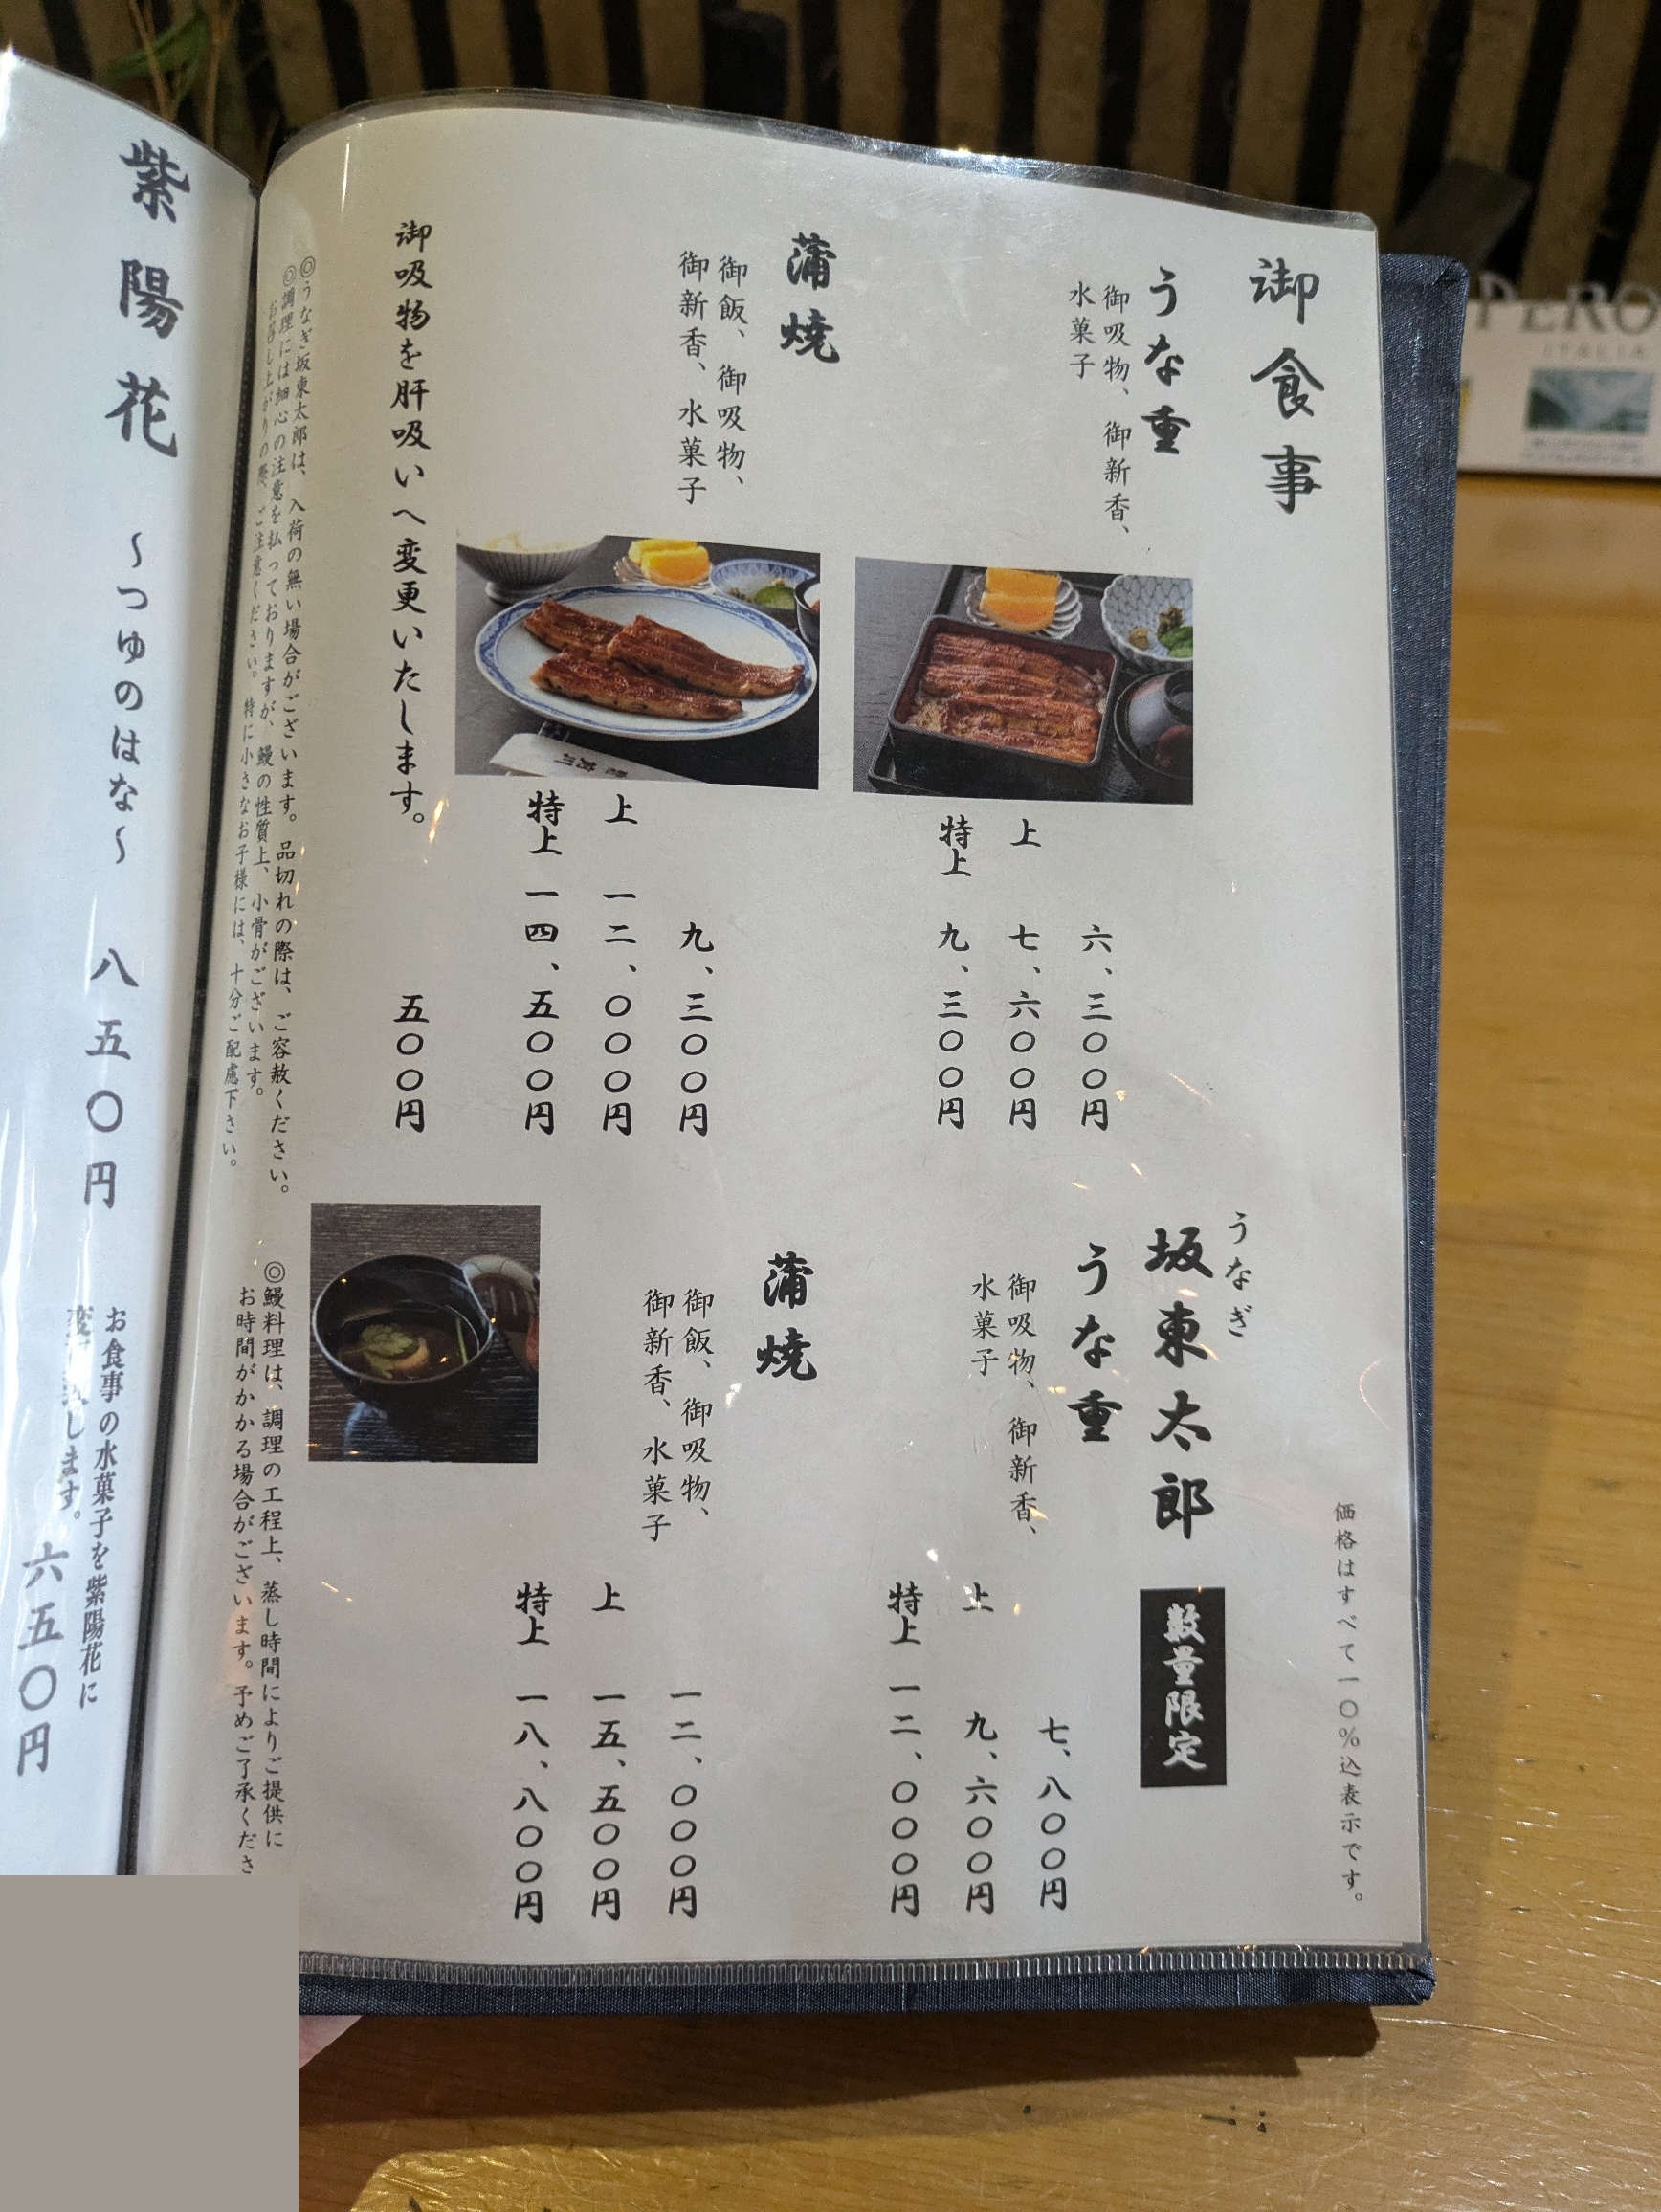 御食事
うな重
御吸物、御新香、
水菓子
六、三〇〇円
上 七、六〇〇円
特上 九、三〇〇円
蒲焼
御飯、御吸物、
御新香、水菓子
九、三〇〇円
上 一二、〇〇〇円
特上 一四、五〇〇円
御吸物を肝吸いへ変更いたします。 五〇〇円
◎うなぎ坂東太郎は、入荷の無い場合がございます。品切れの際は、ご容赦ください。
◎調理には細心の注意を払っておりますが、鰻の性質上、小骨がございます。
お召し上がりの際、ご注意ください。特に小さなお子様には、十分ご配慮下さい。
価格はすべて一〇%込表示です。
うなぎ
坂東太郎
数量限定
うな重
御吸物、御新香、
水菓子
七、八〇〇円
上 九、六〇〇円
特上 一二、〇〇〇円
蒲焼
御飯、御吸物、
御新香、水菓子
一二、〇〇〇円
上 一五、五〇〇円
特上 一八、八〇〇円
◎鰻料理は、調理の工程上、蒸し時間によりご提供に
お時間がかかる場合がございます。予めご了承くださ
紫陽花 〜つゆのはな〜 八五〇円
お食事の水菓子を紫陽花に
します。 六五〇円
PERO
ITALIA